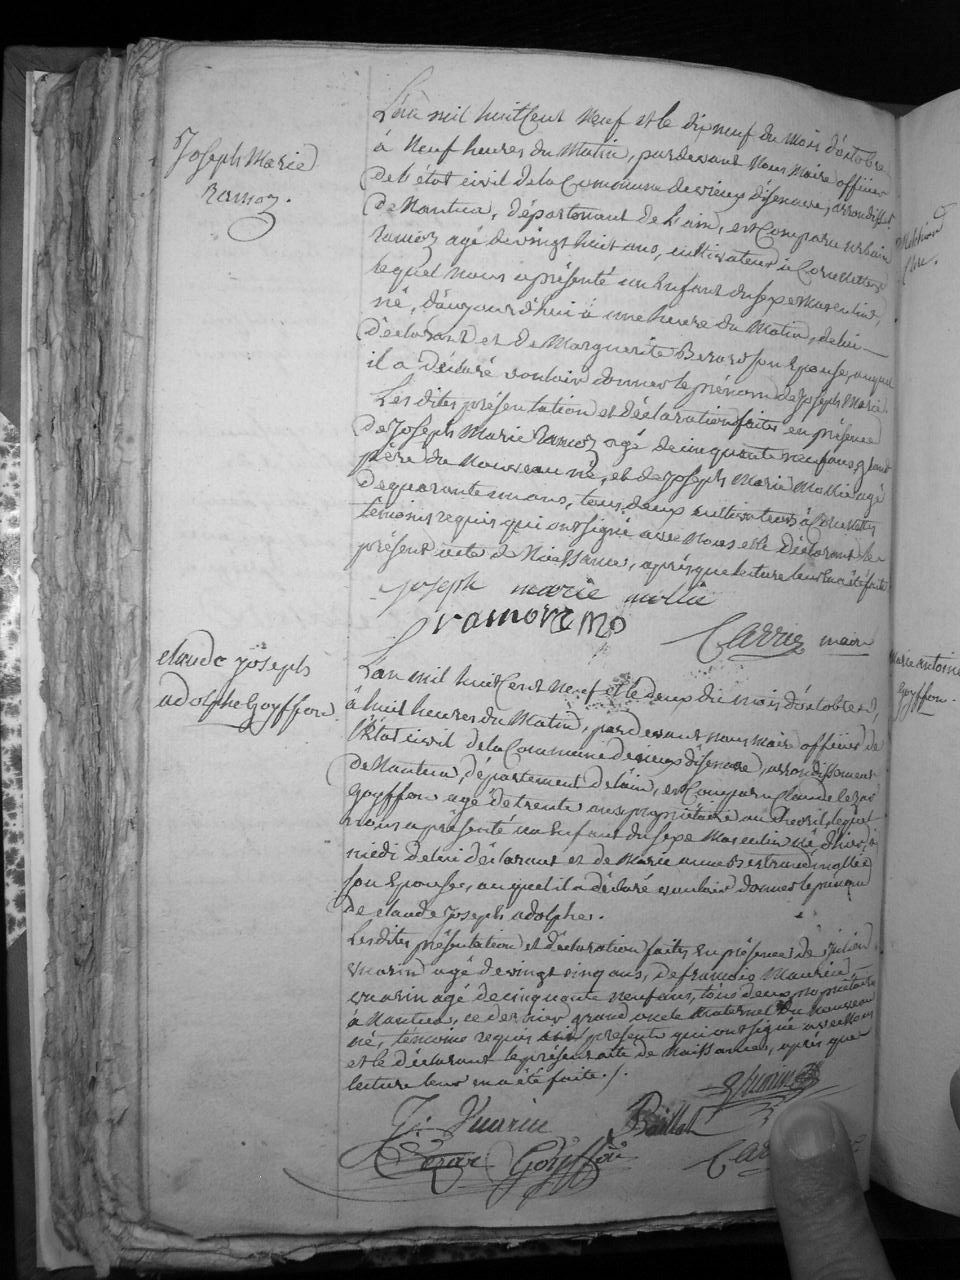 Joseph Marie
Ramoz.
L'an mil huit Cent Neuf et le dix neuf du mois d'octobre
à Neuf heures du Matin, pardevant Nous Maire officier
de l'état civil de la Commune de vieux d'isenave, arrondisst
de Nantua, département de l'ain, est Comparu urbain
ramoz agé de vingt huit ans, cultivateur à
lequel nous a présenté un Enfant du sexe Masculin,
né, d'aujourd'hui à une heure du Matin, de lui
déclarant et de Marguerite Berard son Epouse, auquel
il a déclaré vouloir donner le prénom de Joseph Marie
Les dites présentation et déclaration faites en présence
de Joseph Marie Ramoz agé de cinquante neuf ans, grand
père du Nouveau né, et de Joseph Marie Mollie agé
de quarante un ans, tous deux cultivateurs à
témoins requis qui ont signé avec Nous et le déclarant le
présent acte de Naissance, après que lecture leur en a été faite
joseph marie mollie
ramoz
Carrier maire
claude joseph
adolphe Goyffon
L'an mil huit Cent Neuf et le deux du mois d'octobre
à huit heures du Matin, pardevant nous maire officier de
l'Etat civil de la Commune de vieux d'isenave, arrondissement
de Nantua, département de l'ain, est Comparu Claude Cezar
Goyffon agé de trente ans, propriétaire au lequel
nous a présenté un Enfant du sexe Masculin né d'hier à
midi de lui déclarant et de Marie anne
son Epouse, auquel il a déclaré vouloir donner le prénom
de claude Joseph adolphe.
Les dites présentation et déclaration faites En présence de julien
vuarin agé de vingt cinq ans, de françois Maurice
vuarin agé de cinquante neuf ans, tous deux propriétaires
à Nantua, ce dernier grand oncle Maternel du nouveau
né, témoins requis qui ont signé avec Nous
et le déclarant le présent acte de Naissance, après que
lecture leur en a été faite ./.
J. Vuarin
Baillat
Cézar Goyffon
Marie antoine
Goyffon.